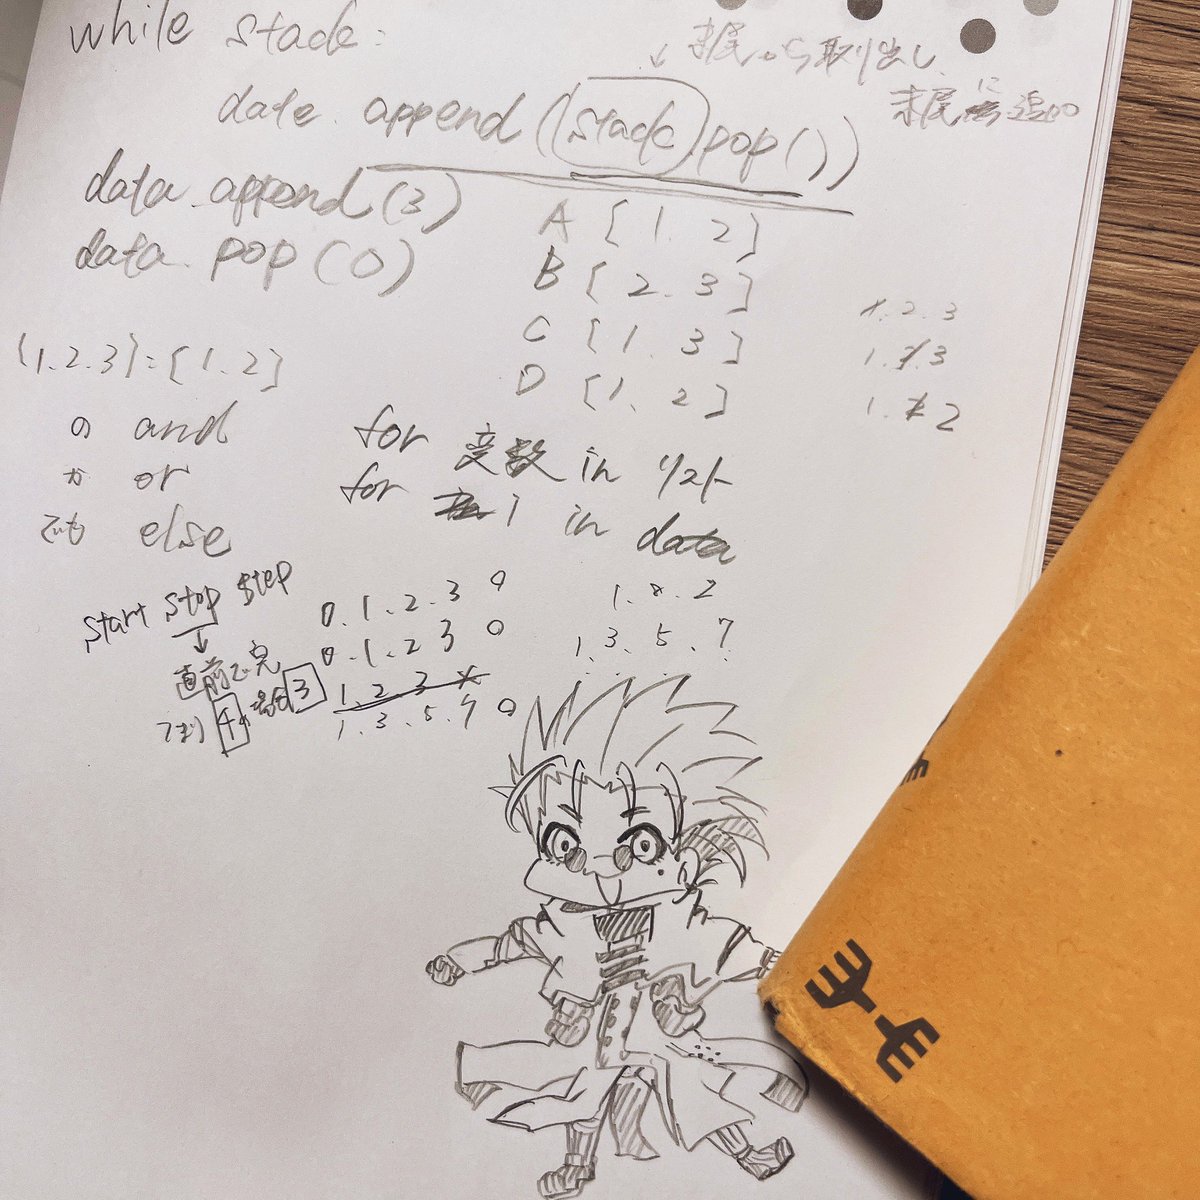 while stack:
↓ 末尾から取り出し
date.append(stack.pop())
末尾に追加
data.append(3)
data.pop(0)
A [1.2]
B [2.3]
C [1.3]
D [1.2]
1.2.3
1.2.3
1. 2
[1.2.3]=[1.2]
の and
か or
でも else
for 変数 in リスト
for i in data
start stop step
↓
直前で完
つまり 4の場合 3
0.1.2.3 o
0.1.2 3 o
1.2 3 4
1.3.5.7 o
1. 2
1.3.5.7